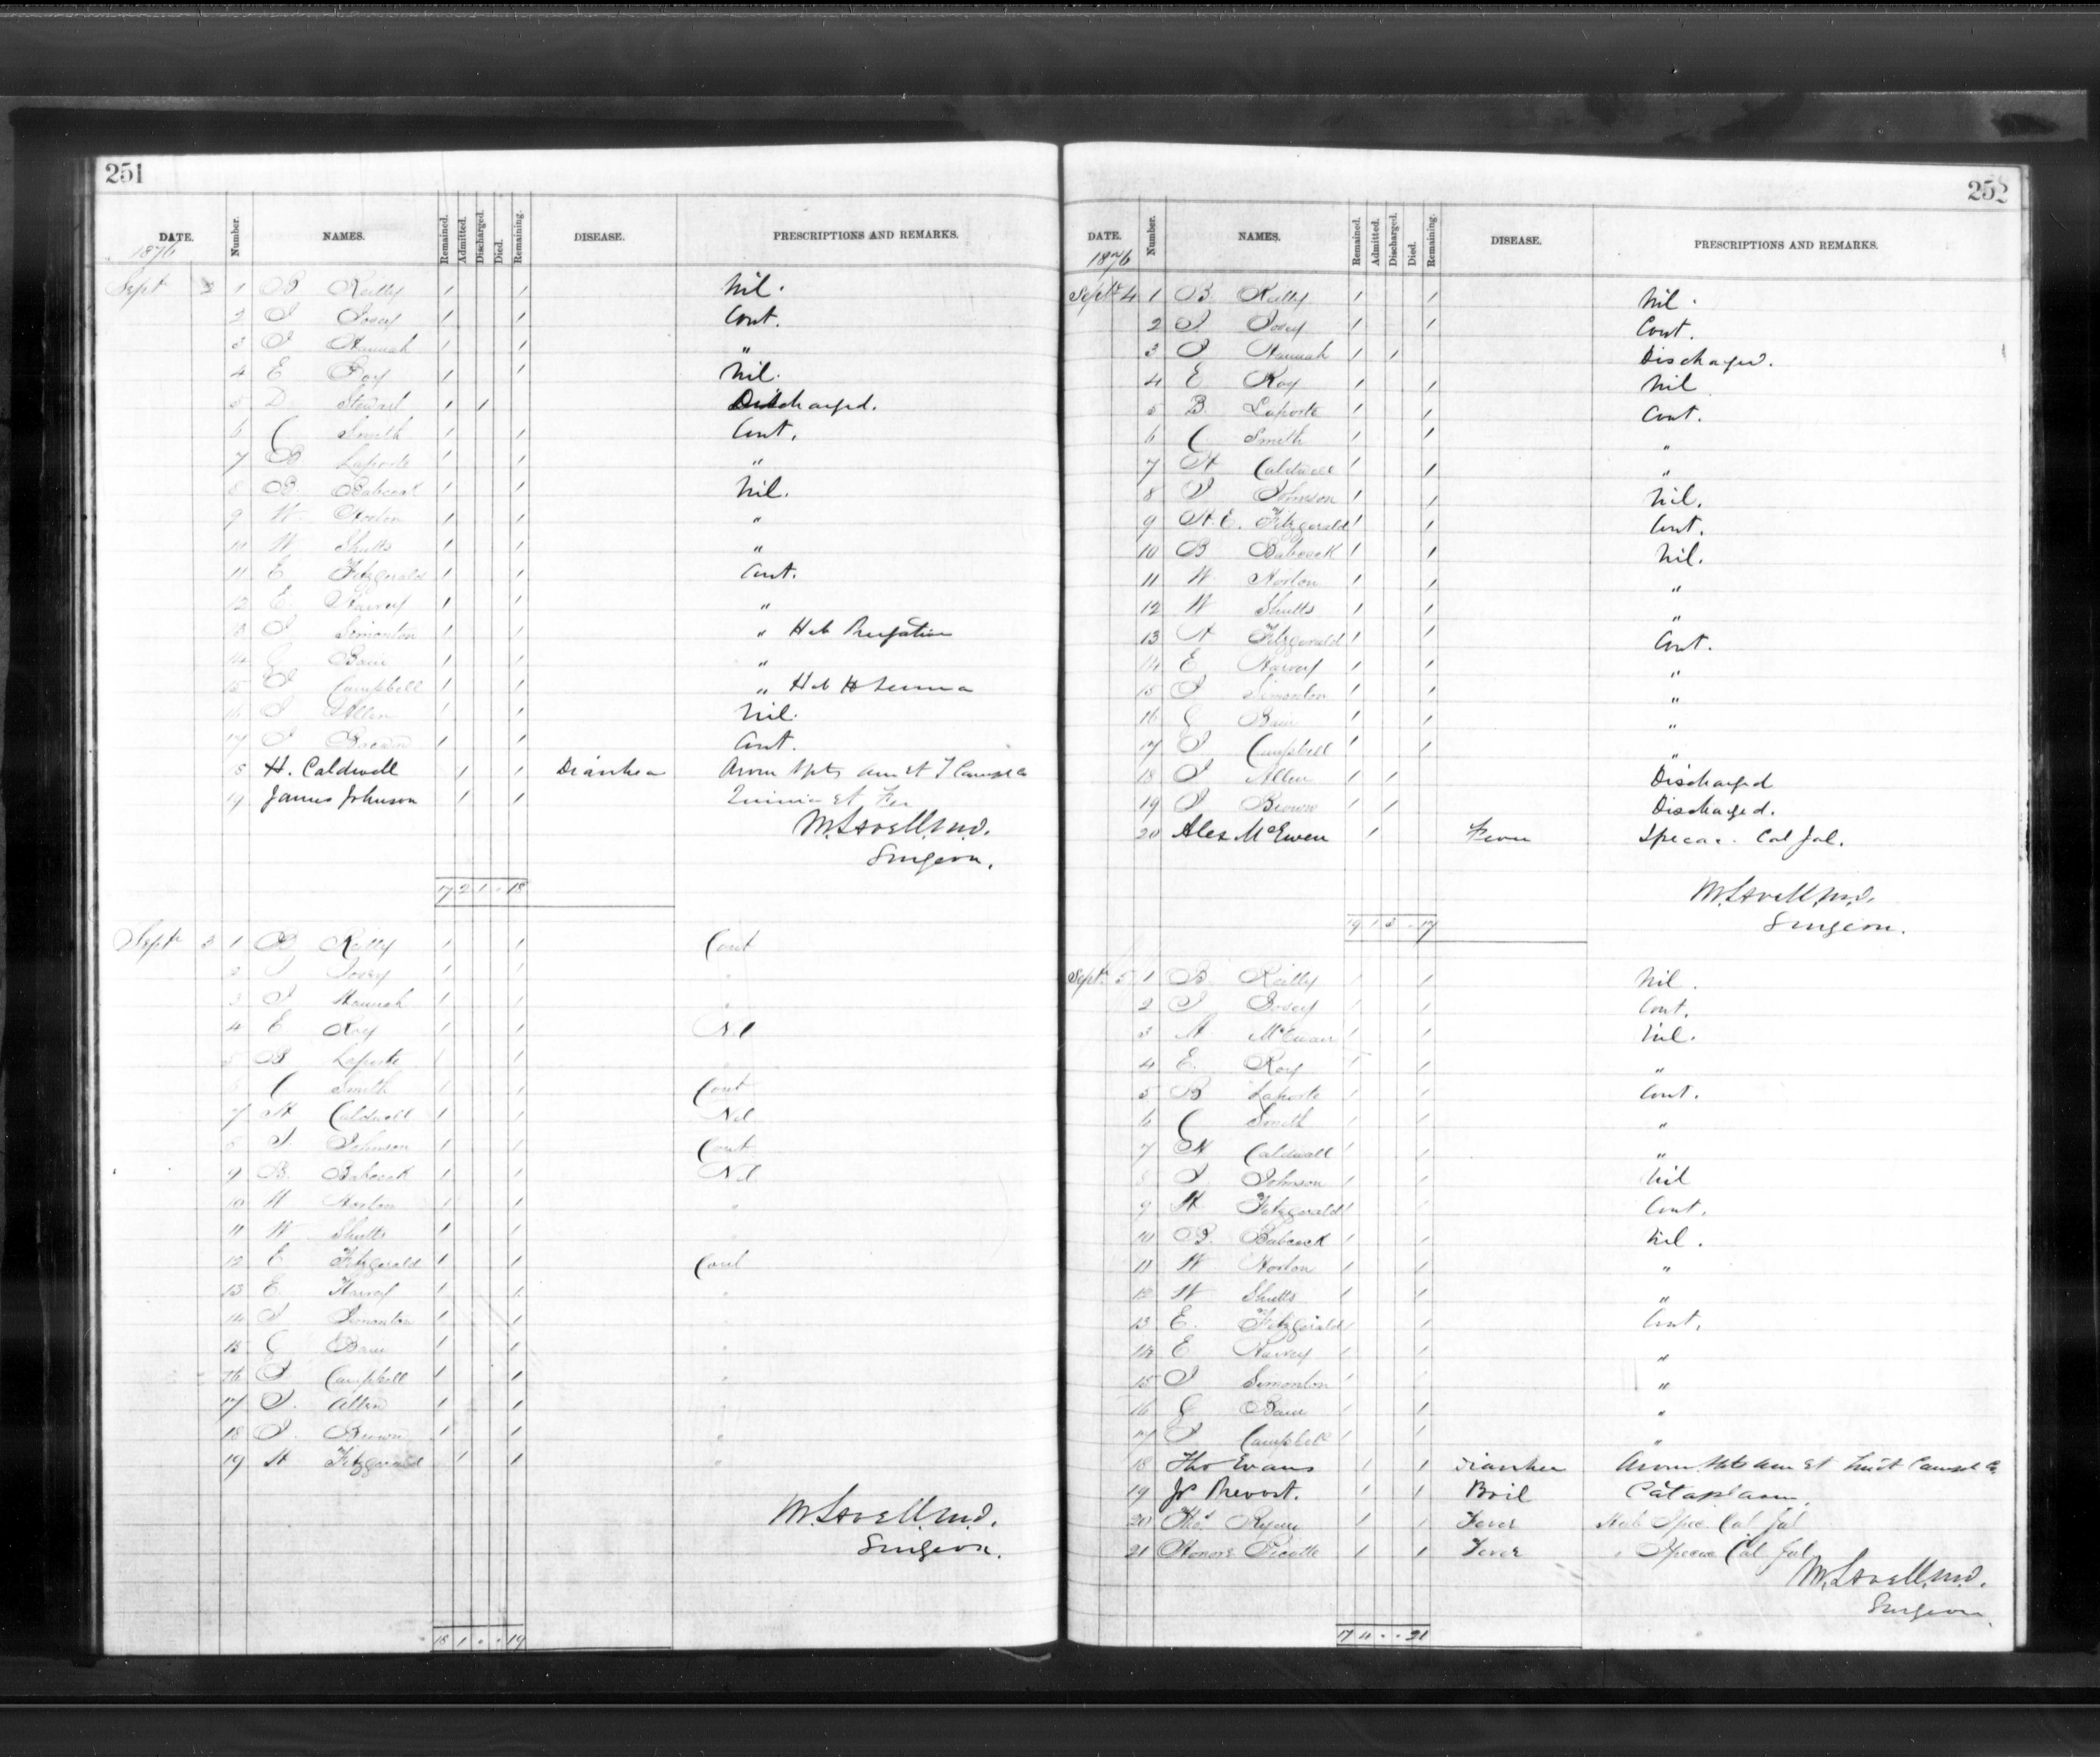 251
DATE. Number. NAMES. Remained. Admitted. Discharged. Died. Remaining. DISEASE. PRESCRIPTIONS AND REMARKS.
1876
Sept 1 B Reilly 1 1 Nil.
2 J Josey 1 1 Cont.
3 J Hannah 1 1 "
4 E Roy 1 1 Nil.
5 D Stewart 1 1 Discharged.
6 C Smith 1 1 Cont.
7 B Laporte 1 1 "
8 B. Babcock 1 1 Nil.
9 W Norton 1 1 "
10 W Shutts 1 1 "
11 E Fitzgerald 1 1 Cont.
12 E. Harvey 1 1 "
13 J Simonton 1 1 " Hab Purgative
14 G Bain 1 1 "
15 J Campbell 1 1 " Hab
16 J Allen 1 1 Nil.
17 J Brown 1 1 Cont.
18 H. Caldwell 1 1 Diarrhea Arom
19 James Johnson 1 1 et
M. Lavell M.D.
Surgeon.
17 2 1 . 18
Sept 3 1 B Reilly 1 1 Cont
2 J Josey 1 1 "
3 J Hannah 1 1 "
4 E Roy 1 1 Nil
5 B Laporte 1 1
6 C Smith 1 1 Cont
7 H Caldwell 1 1 Nil
8 J. Johnson 1 1 Cont
9 B. Babcock 1 1 Nil
10 W Norton 1 1 "
11 W Shutts 1 1
12 E Fitzgerald 1 1 Cont
13 E. Harvey 1 1 "
14 J Simonton 1 1 "
15 G Bain 1 1 "
16 J Campbell 1 1 "
17 J. Allen 1 1 "
18 J. Brown 1 1 "
19 H Fitzgerald 1 1 "
M. Lavell M.D.
Surgeon.
18 1 . . 19
252
DATE. Number. NAMES. Remained. Admitted. Discharged. Died. Remaining. DISEASE. PRESCRIPTIONS AND REMARKS.
1876
Sept 4 1 B. Reilly 1 1 Nil.
2 J. Josey 1 1 Cont.
3 J Hannah 1 1 Discharged.
4 E Roy 1 1 Nil
5 B. Laporte 1 1 Cont.
6 C Smith 1 1 "
7 H Caldwell 1 1 "
8 J Johnson 1 1 Nil.
9 H.E. Fitzgerald 1 1 Cont.
10 B Babcock 1 1 Nil.
11 W Norton 1 1 "
12 W Shutts 1 1 "
13 H Fitzgerald 1 1 Cont.
14 E Harvey 1 1 "
15 J Simonton 1 1 "
16 G Bain 1 1 "
17 J Campbell 1 1 "
18 J Allen 1 1 Discharged
19 J Brown 1 1 Discharged.
20 Alex McEwen 1 Fever Ipecac. Cal Jal.
M. Lavell M.D.
Surgeon.
19 1 3 . 17
Sept. 5 1 B. Reilly 1 1 Nil.
2 J Josey 1 1 Cont.
3 A McEwen 1 1 Nil.
4 E. Roy 1 1 "
5 B Laporte 1 1 Cont.
6 C Smith 1 1 "
7 H Caldwell 1 1 "
8 J Johnson 1 1 Nil
9 H Fitzgerald 1 1 Cont.
10 B. Babcock 1 1 Nil.
11 W Norton 1 1 "
12 W Shutts 1 1 "
13 E. Fitzgerald 1 1 Cont.
14 E Harvey 1 1 "
15 J Simonton 1 1 "
16 G Bain 1 1 "
17 J Campbell 1 1 "
18 Tho Evans 1 1 Diarrhea Arom
19 Jo Prevost. 1 1 Boil Cataplasm.
20 Thos Ryan 1 1 Fever Hab Ipec. Cal Jal
21 Honore Picotte 1 1 Fever " Ipecac Cal Jal
M. Lavell M.D.
Surgeon.
17 4 . . 21